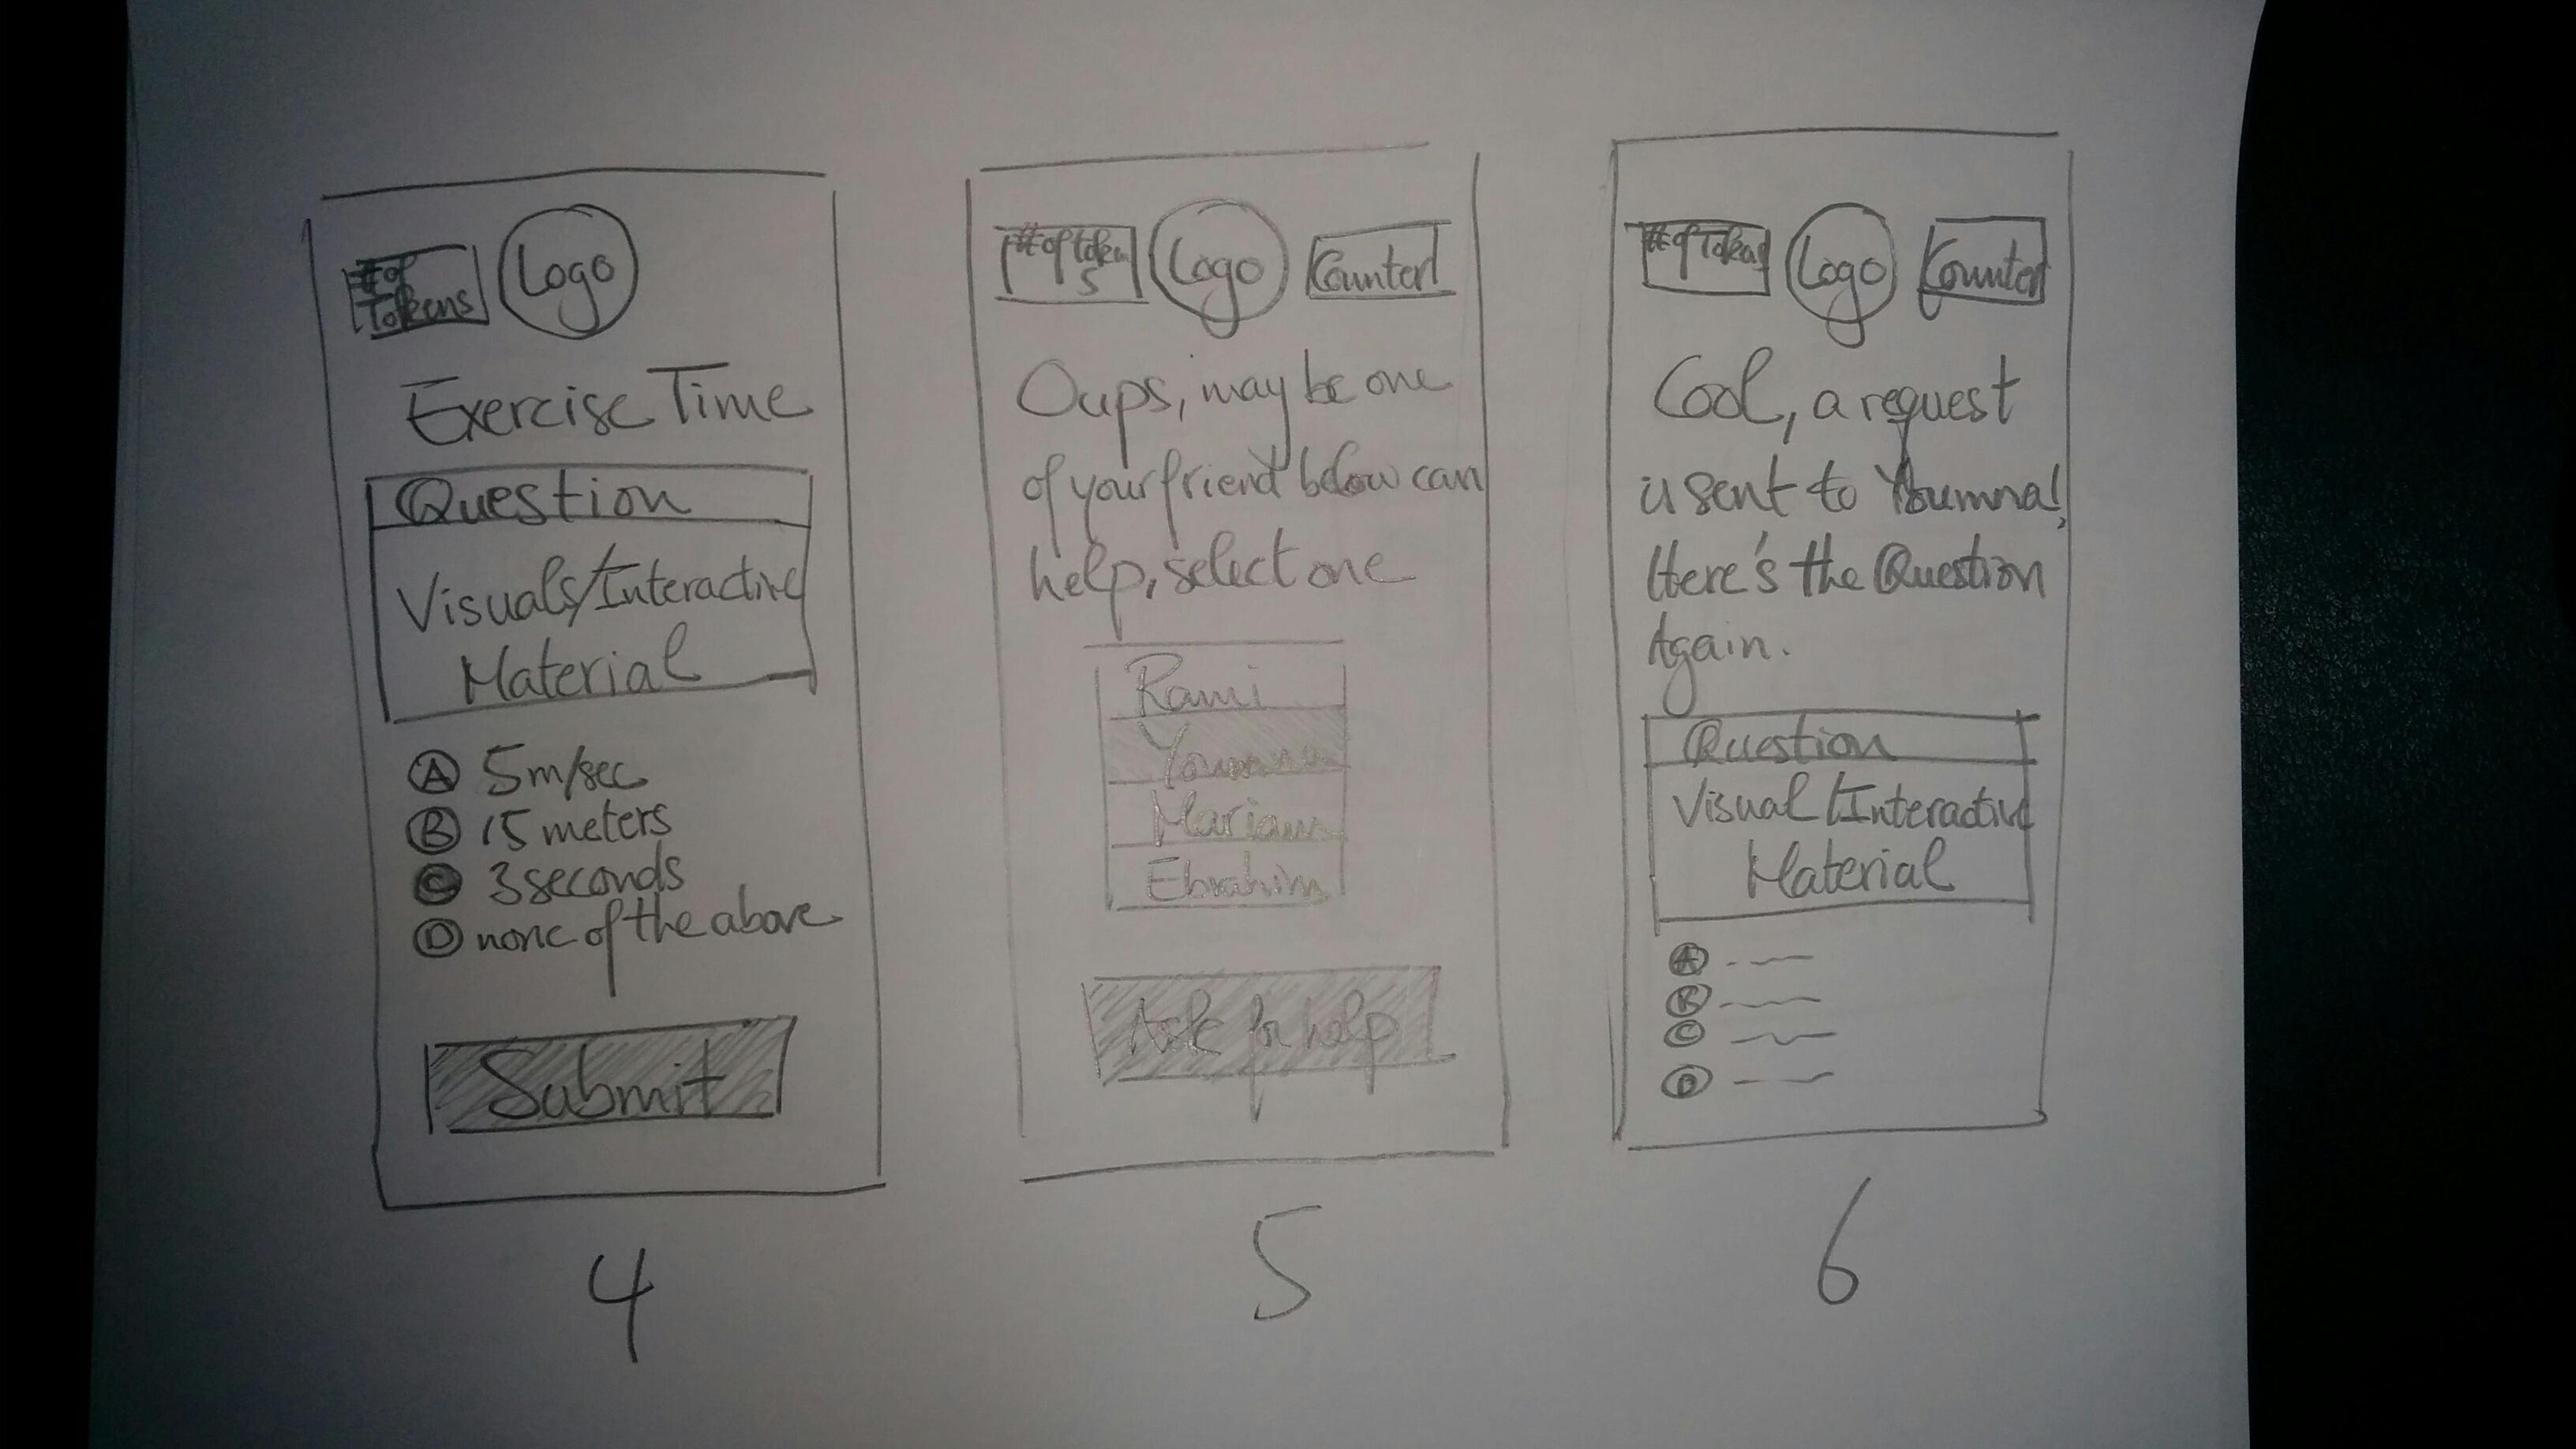 # of
Tokens
Logo
Exercise Time
Question
Visuals/Interactive
Material
A 5m/sec
B 15 meters
C 3 seconds
D none of the above
Submit
4
# of Token
s
Logo
Counter
Oups, may be one
of your friend below can
help, select one
Rami
Youmna
Mariam
Ebrahim
Ask for help
5
# of Tokens
Logo
Counter
Cool, a request
is sent to Youmna!,
Here's the Question
Again.
Question
Visual/Interactive
Material
A
B
C
D
6